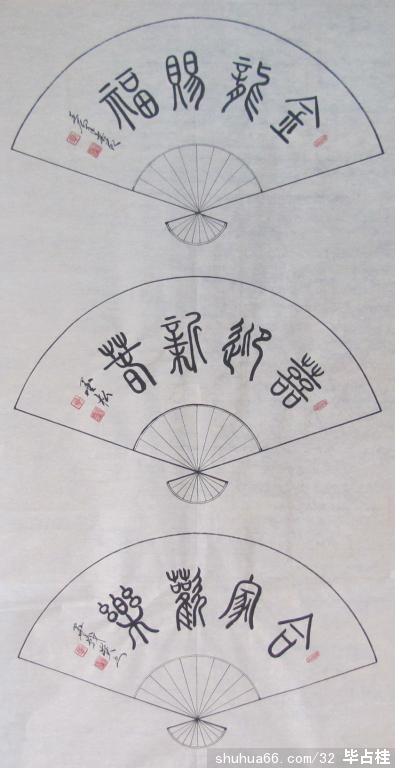 金龍賜福
囍迎新春
合家歡樂
shuhua66.com/32 毕占桂